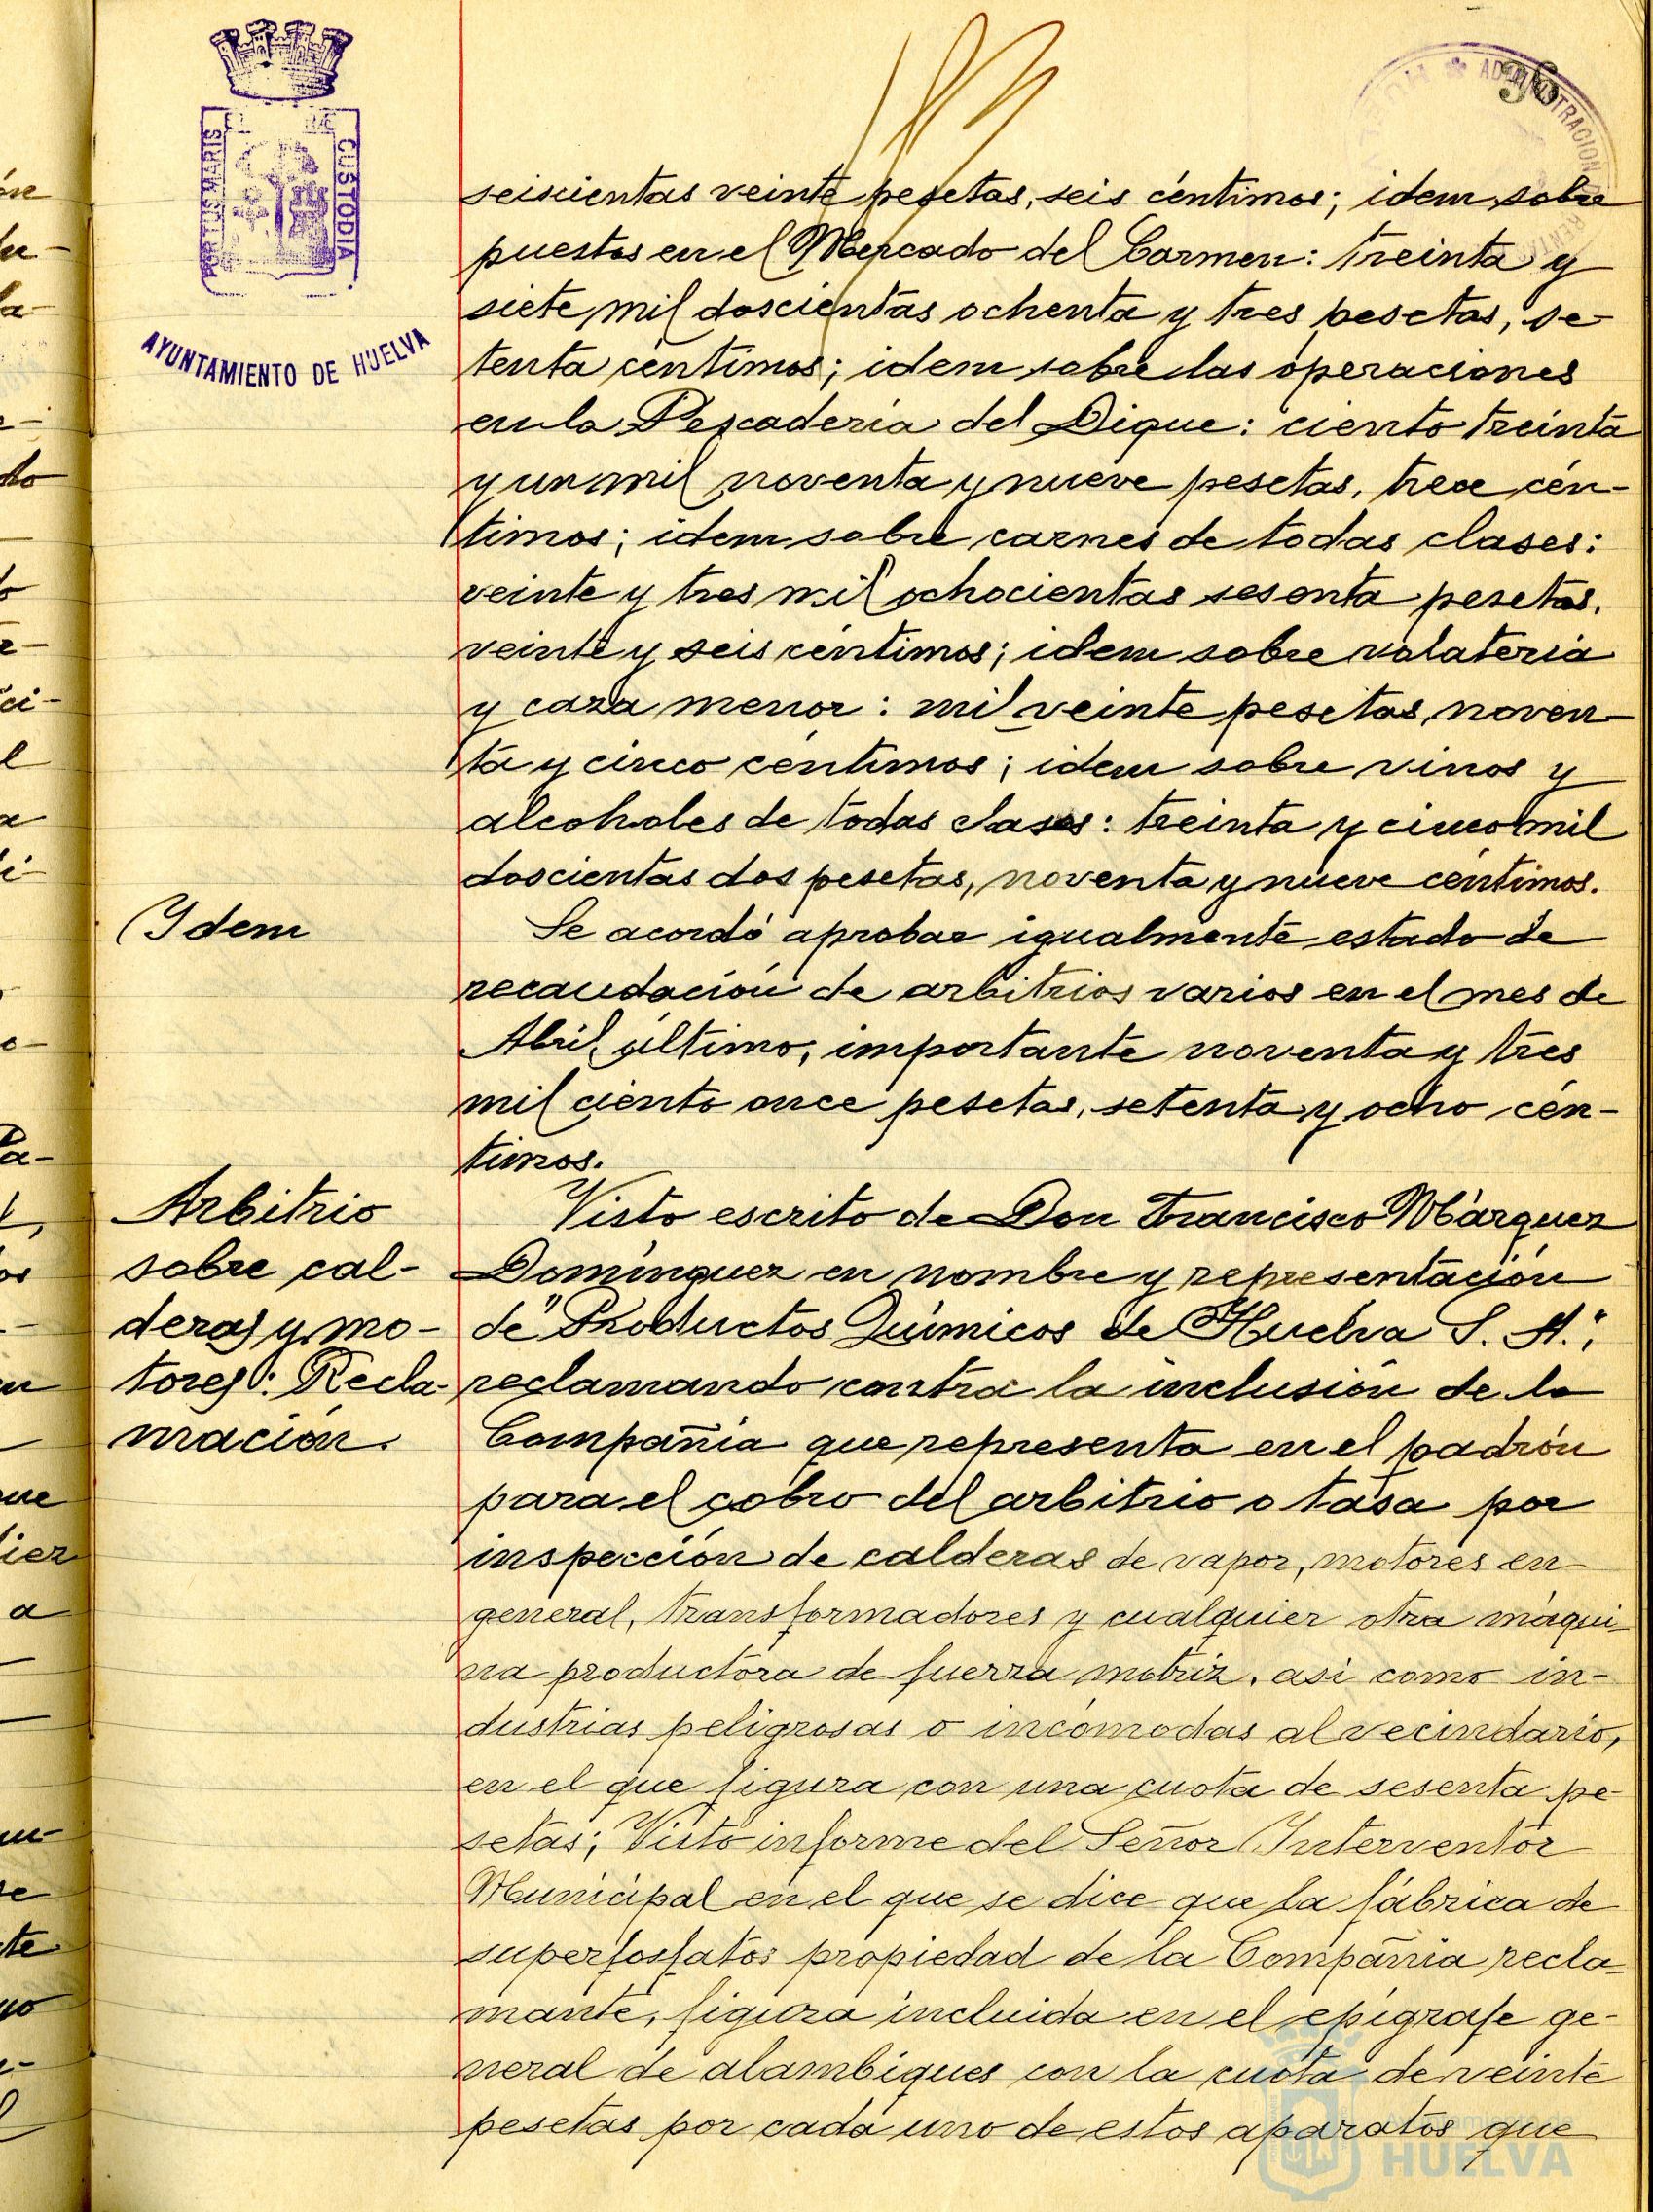 PORTUS MARIS
CUSTODIA
AYUNTAMIENTO DE HUELVA
36
ADMINISTRACION
RENTAS
seiscientas veinte pesetas, seis céntimos; idem sobre
puestos en el Mercado del Carmen: treinta y
siete mil doscientas ochenta y tres pesetas, se-
tenta céntimos; idem sobre las operaciones
en la Pescadería del Dique: ciento treinta
y un mil noventa y nueve pesetas, trece cén-
timos; idem sobre carnes de todas clases:
veinte y tres mil ochocientas sesenta pesetas,
veinte y seis céntimos; idem sobre volatería
y caza menor: mil veinte pesetas, noven-
ta y cinco céntimos; idem sobre vinos y
alcoholes de todas clases: treinta y cinco mil
doscientas dos pesetas, noventa y nueve céntimos.
Ydem
Se acordó aprobar igualmente estado de
recaudación de arbitrios varios en el mes de
Abril último, importante noventa y tres
mil ciento once pesetas, setenta y ocho cén-
timos.
Arbitrio
sobre cal-
deras y mo-
tores: Recla-
mación.
Visto escrito de Don Francisco Márquez
Domínguez en nombre y representación
de "Productos Químicos de Huelva S. A.",
reclamando contra la inclusión de la
Compañía que representa en el padrón
para el cobro del arbitrio o tasa por
inspección de calderas de vapor, motores en
general, transformadores y cualquier otra máqui-
na productora de fuerza motriz, asi como in-
dustrias peligrosas o incómodas al vecindario,
en el que figura con una cuota de sesenta pe-
setas; Visto informe del Señor Interventor
Municipal en el que se dice que la fábrica de
superfosfatos propiedad de la Compañia recla-
mante, figura incluida en el epígrafe ge-
neral de alambiques con la cuota de veinte
pesetas por cada uno de estos aparatos que
Ayuntamiento de
HUELVA